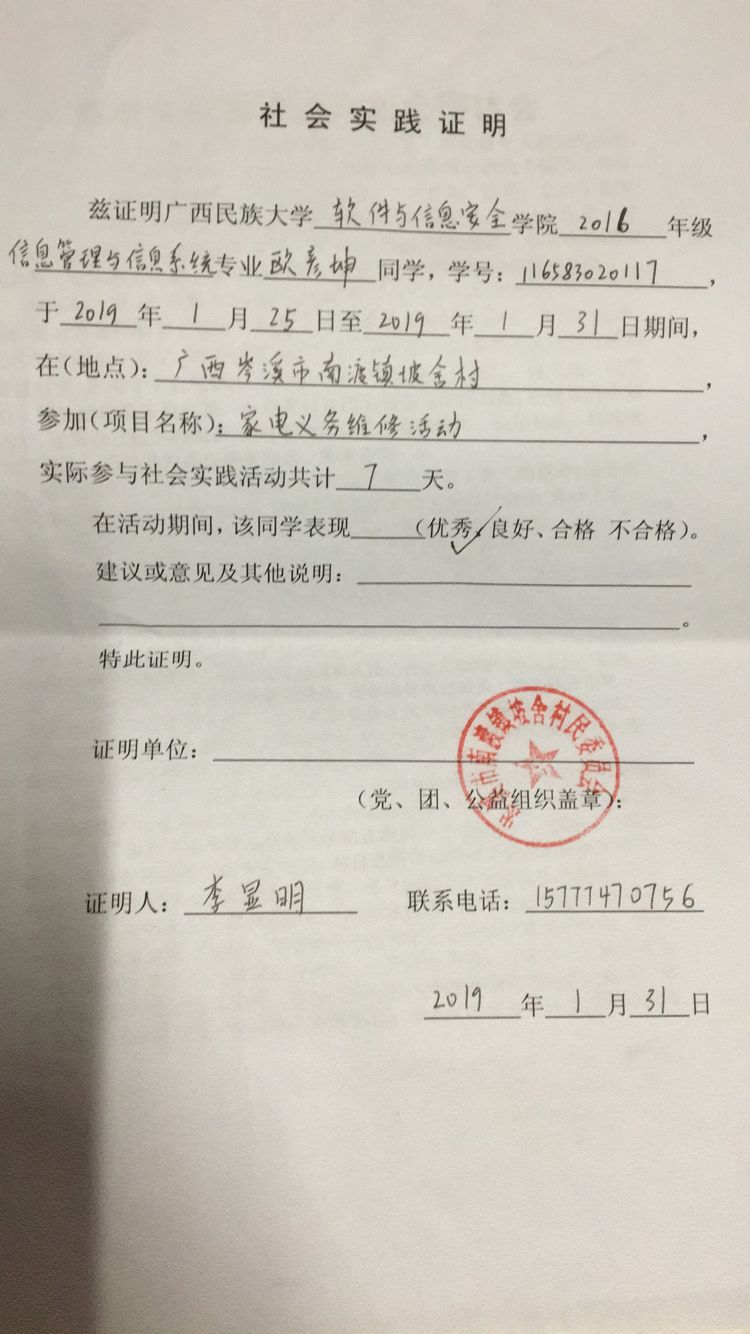 社会实践证明
兹证明广西民族大学 软件与信息安全 学院 2016 年级
信息管理与信息系统专业 欧彦坤 同学，学号：116583020117，
于 2019 年 1 月 25 日至 2019 年 1 月 31 日期间，
在(地点)：广西岑溪市南渡镇坡舍村，
参加(项目名称)：家电义务维修活动，
实际参与社会实践活动共计 7 天。
在活动期间，该同学表现____(优秀、良好、合格 不合格)。
✓
建议或意见及其他说明：
。
特此证明。
证明单位：
岑溪市南渡镇坡舍村民委员会
（党、团、公益组织盖章）：
证明人：李显明 联系电话：15777470756
2019 年 1 月 31 日